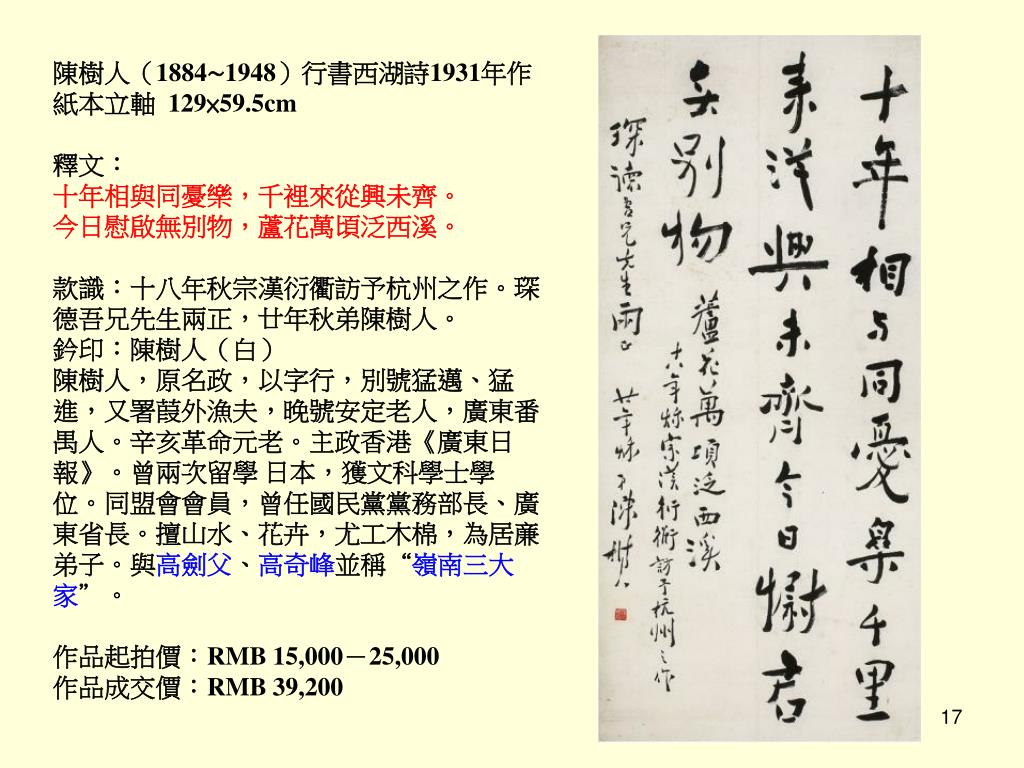 陳樹人（1884~1948）行書西湖詩1931年作
紙本立軸 129×59.5cm
釋文：
十年相與同憂樂，千裡來從興未齊。
今日慰啟無別物，蘆花萬頃泛西溪。
款識：十八年秋宗漢衍衢訪予杭州之作。琛
德吾兄先生兩正，廿年秋弟陳樹人。
鈐印：陳樹人（白）
陳樹人，原名政，以字行，別號猛邁、猛
進，又署葭外漁夫，晚號安定老人，廣東番
禺人。辛亥革命元老。主政香港《廣東日
報》。曾兩次留學 日本，獲文科學士學
位。同盟會會員，曾任國民黨黨務部長、廣
東省長。擅山水、花卉，尤工木棉，為居廉
弟子。與高劍父、高奇峰並稱“嶺南三大
家”。
作品起拍價：RMB 15,000－25,000
作品成交價：RMB 39,200
十年相与同憂樂千里
来從興未齊今日慰君
無別物 蘆花萬頃泛西溪
十八年秋宗漢衍衢訪予杭州之作
琛德吾兄先生兩正 廿年秋弟陳樹人
17